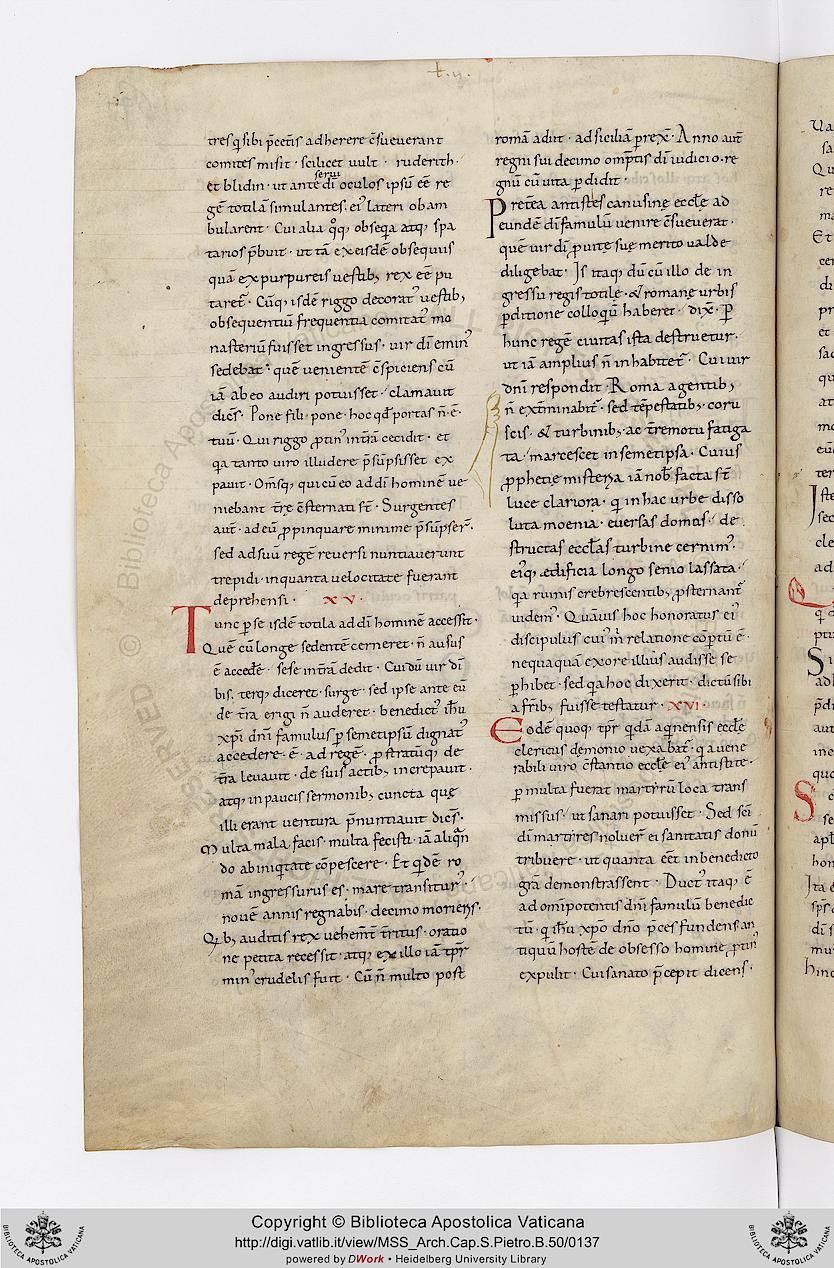 tres q̄ sibi p̄cet̄is adherere c̄sueuerant
comites misit · scilicet uult · ruderith ·
serui
et blidin · ut ante dī oculos ipsū eē re
gē totilā simulantes · ei' lateri obam
bularent · Cui alia q̊q; obseq̄a atq; spa
tarios p̄buit · ut tā ex eisdē obsequiis
quā ex purpureis uestib; rex eē pu
taret̄ · Cūq; isdē riggo decorat' uestib;
obsequentiū frequentia comitat' mo
nasteriū fuisset ingressus · uir dī emin'
sedebat · quē uenientē c̄spiciens cū
iā ab eo audiri potuisset · clamauit
dicēs · Pone fili · pone · hoc qd̄ portas n̄ ē ·
tuū · Qui riggo p̄tin' in trā cecidit · et
q̄a tanto uiro illudere p̄sūpsisset ex
pauit · Om̄sq; qui cū eo ad dī hominē ue
niebant tr̄e c̄sternati st̄ · Surgentes
aut̄ · ad eū p̄pinquare minime p̄sūpser̄ ·
sed ad suū regē reuersi nuntiauerunt
trepidi · in quanta uelocitate fuerant
deprehensi · XV ·
Tunc p se isdē totila ad dī hominē accessit ·
Quē cū longe sedentē cerneret · n̄ ausus
ē accedē · sese in trā dedit · Cui dū uir dī
bis · terq; diceret · surge · sed ipse ante eū
de tr̄a erigi n̄ auderet · benedict' ih̄u
xp̄i dn̄i famulus p semetipsum dignat'
accedere · ē · ad regē · p̄stratūq; de
tr̄a leuauit · de suis actib; increpauit ·
atq; in paucis sermonib; cuncta quę
illi erant uentura p̄nuntiauit dicēs ·
Multa mala facis · multa fecisti · iā aliqn̄
do ab iniq̄tate cōpescere · Et q̄dē ro
mā ingressurus es · mare transitur' ·
nouē annis regnabis · decimo morieris ·
Q̄b; auditis rex uehem̄t t̄ritus · oratio
ne petita recessit · atq; ex illo iā tp̄r
min' crudelis fuit · Cū n̄ multo post
romā adiit · ad siciliā prex̄ · Anno aut̄
regni sui decimo omp̄tis dī iudicio · re
gnū cū uita pdidit ·
Pretēa antistes canusinę eccłe ad
eundē dī famulū uenire c̄sueuerat ·
quē uir dī p uitę suę merito ualde
diligebat · Is itaq; dū cū illo de in
gressu regis totilę · & romanę urbis
pditione colloquiū haberet · dix̄ · P
hunc regē ciuitas ista destruetur ·
ut iā amplius n̄ inhabitet̄ · Cui uir
dn̄i respondit · Roma a gentib;
n̄ ext̄minabit̄ · sed tēpestatib; coru
scis · & turbinib; ac t̄remotu fatiga
ta · marcescet in semetipsa · Cuius
p̄phetię misteria iā nob̄ facta st̄
luce clariora · q̄ in hac urbe disso
luta moenia · euersas domus · de
structas eccłas turbine cernim' ·
eiq; ædificia longo senio lassata ·
q̄a ruinis crebrescentib; p̄sternant̄
uidem' · Quāuis hoc honoratus ei'
discipulus cui' m̄ relatione cōptū ē ·
nequaquā ex ore illius audisse se
phibet · sed q̄a hoc dixerit · dictū sibi
a frīb; fuisse testatur · XVI ·
Eodē quoq; tp̄r q̄dā aq̄nensis eccłę
clericus dęmonio uexabat̄ · q̄ a uene
rabili uiro c̄stantio eccłę ei' antistite ·
p multa fuerat martyrū loca trans
missus · ut sanari potuisset · Sed sc̄i
dī martyres noluer̄ ei sanitatis donū
tribuere · ut quanta eēt in benedicto
gr̄a demonstrassent · Duct' itaq; ē
ad omīpotentis dn̄i famulū benedic
tū · q̄ ih̄u xp̄o dn̄o p̄ces fundens an
tiquū hostē de obsesso homine p̄tin'
expulit · Cui sanato p̄cepit dicens ·
Copyright © Biblioteca Apostolica Vaticana
http://digi.vatlib.it/view/MSS_Arch.Cap.S.Pietro.B.50/0137
powered by DWork • Heidelberg University Library